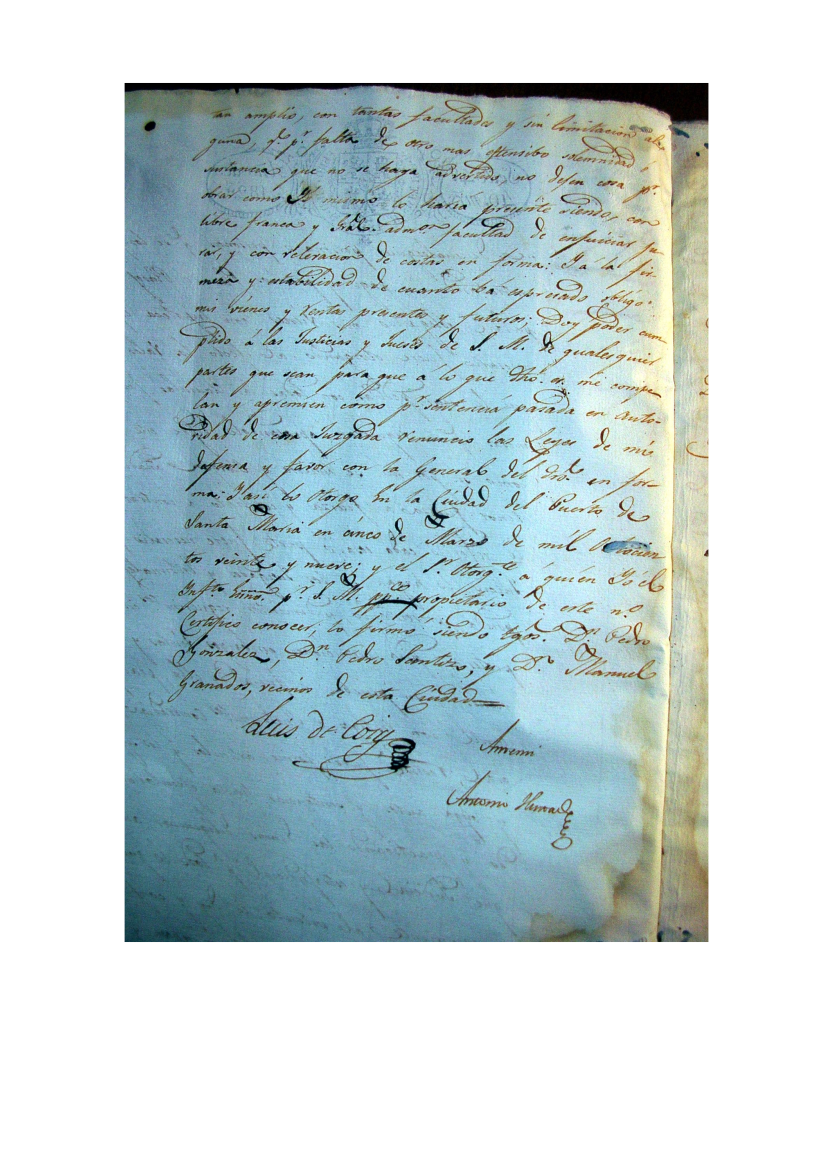 tan amplio, con tantas facultades y sin limitacion al-
guna, q.e p.r falta de otro mas estensibo solemnidad ó
sustancia que no se haga advertido, no desen cosa p.r
obrar como Yo mismo lo haria presente siendo, con
libre franca y Gral. admon facultad de enjuiciar ju-
rar, y con releracion de costas en forma: Y á la fir-
meza y estabilidad de cuanto ba espresado obligo
mis vienes y rentas presentes y futuros; Doy poder cum-
plido á las Justicias y Jueses de S. M. de qualesquier
partes que sean para que á lo que dho. es, me compe-
lan y apremien como p.r sentencia pasada en auto-
ridad de cosa Juzgada renuncio las Leyes de mi
defensa y favor con la General del dro. en for-
ma: Y así lo Otorgo En la Ciudad del Puerto de
Santa Maria en cinco de Marzo de mil Ochocien-
tos veinte y nueve; y el S.r Otorg.te a quien Yo el
Infto. Essno. p.r S. M. pp.co propietario de este n.o
Certifico conocer, lo firmó siendo tgos. D.n Pedro
Gonzalez, D.n Pedro Santizo, y D.n Manuel
Granados, vecinos de esta Ciudad
Luis de
Antemi
Antonio